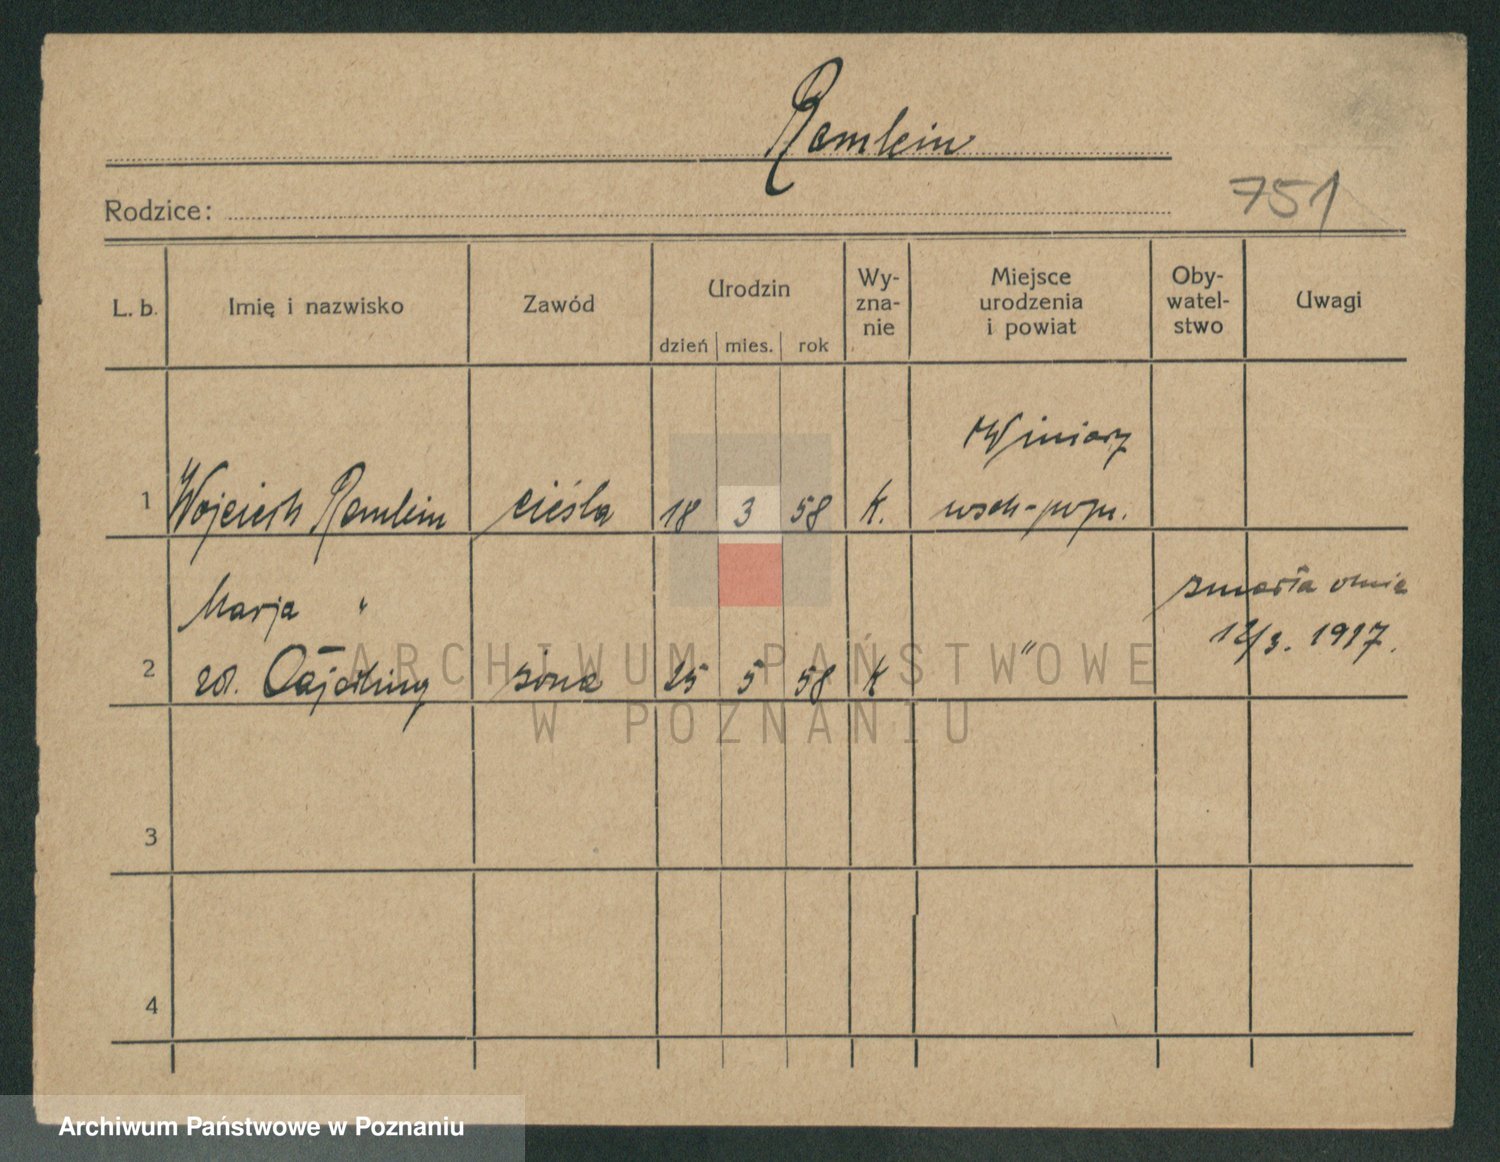 Remlein
Rodzice:
751
L. b. Imię i nazwisko Zawód Urodzin dzień mies. rok Wy-zna-nie Miejsce urodzenia i powiat Oby-watel-stwo Uwagi
Winiary
1 Wojciech Remlein cieśla 18 3 58 k. wsch-pozn.
Marja " zmarła dnia
12/3. 1917.
2 żona 25 5 58 k "
3
4
ARCHIWUM PAŃSTWOWE
W POZNANIU
Archiwum Państwowe w Poznaniu